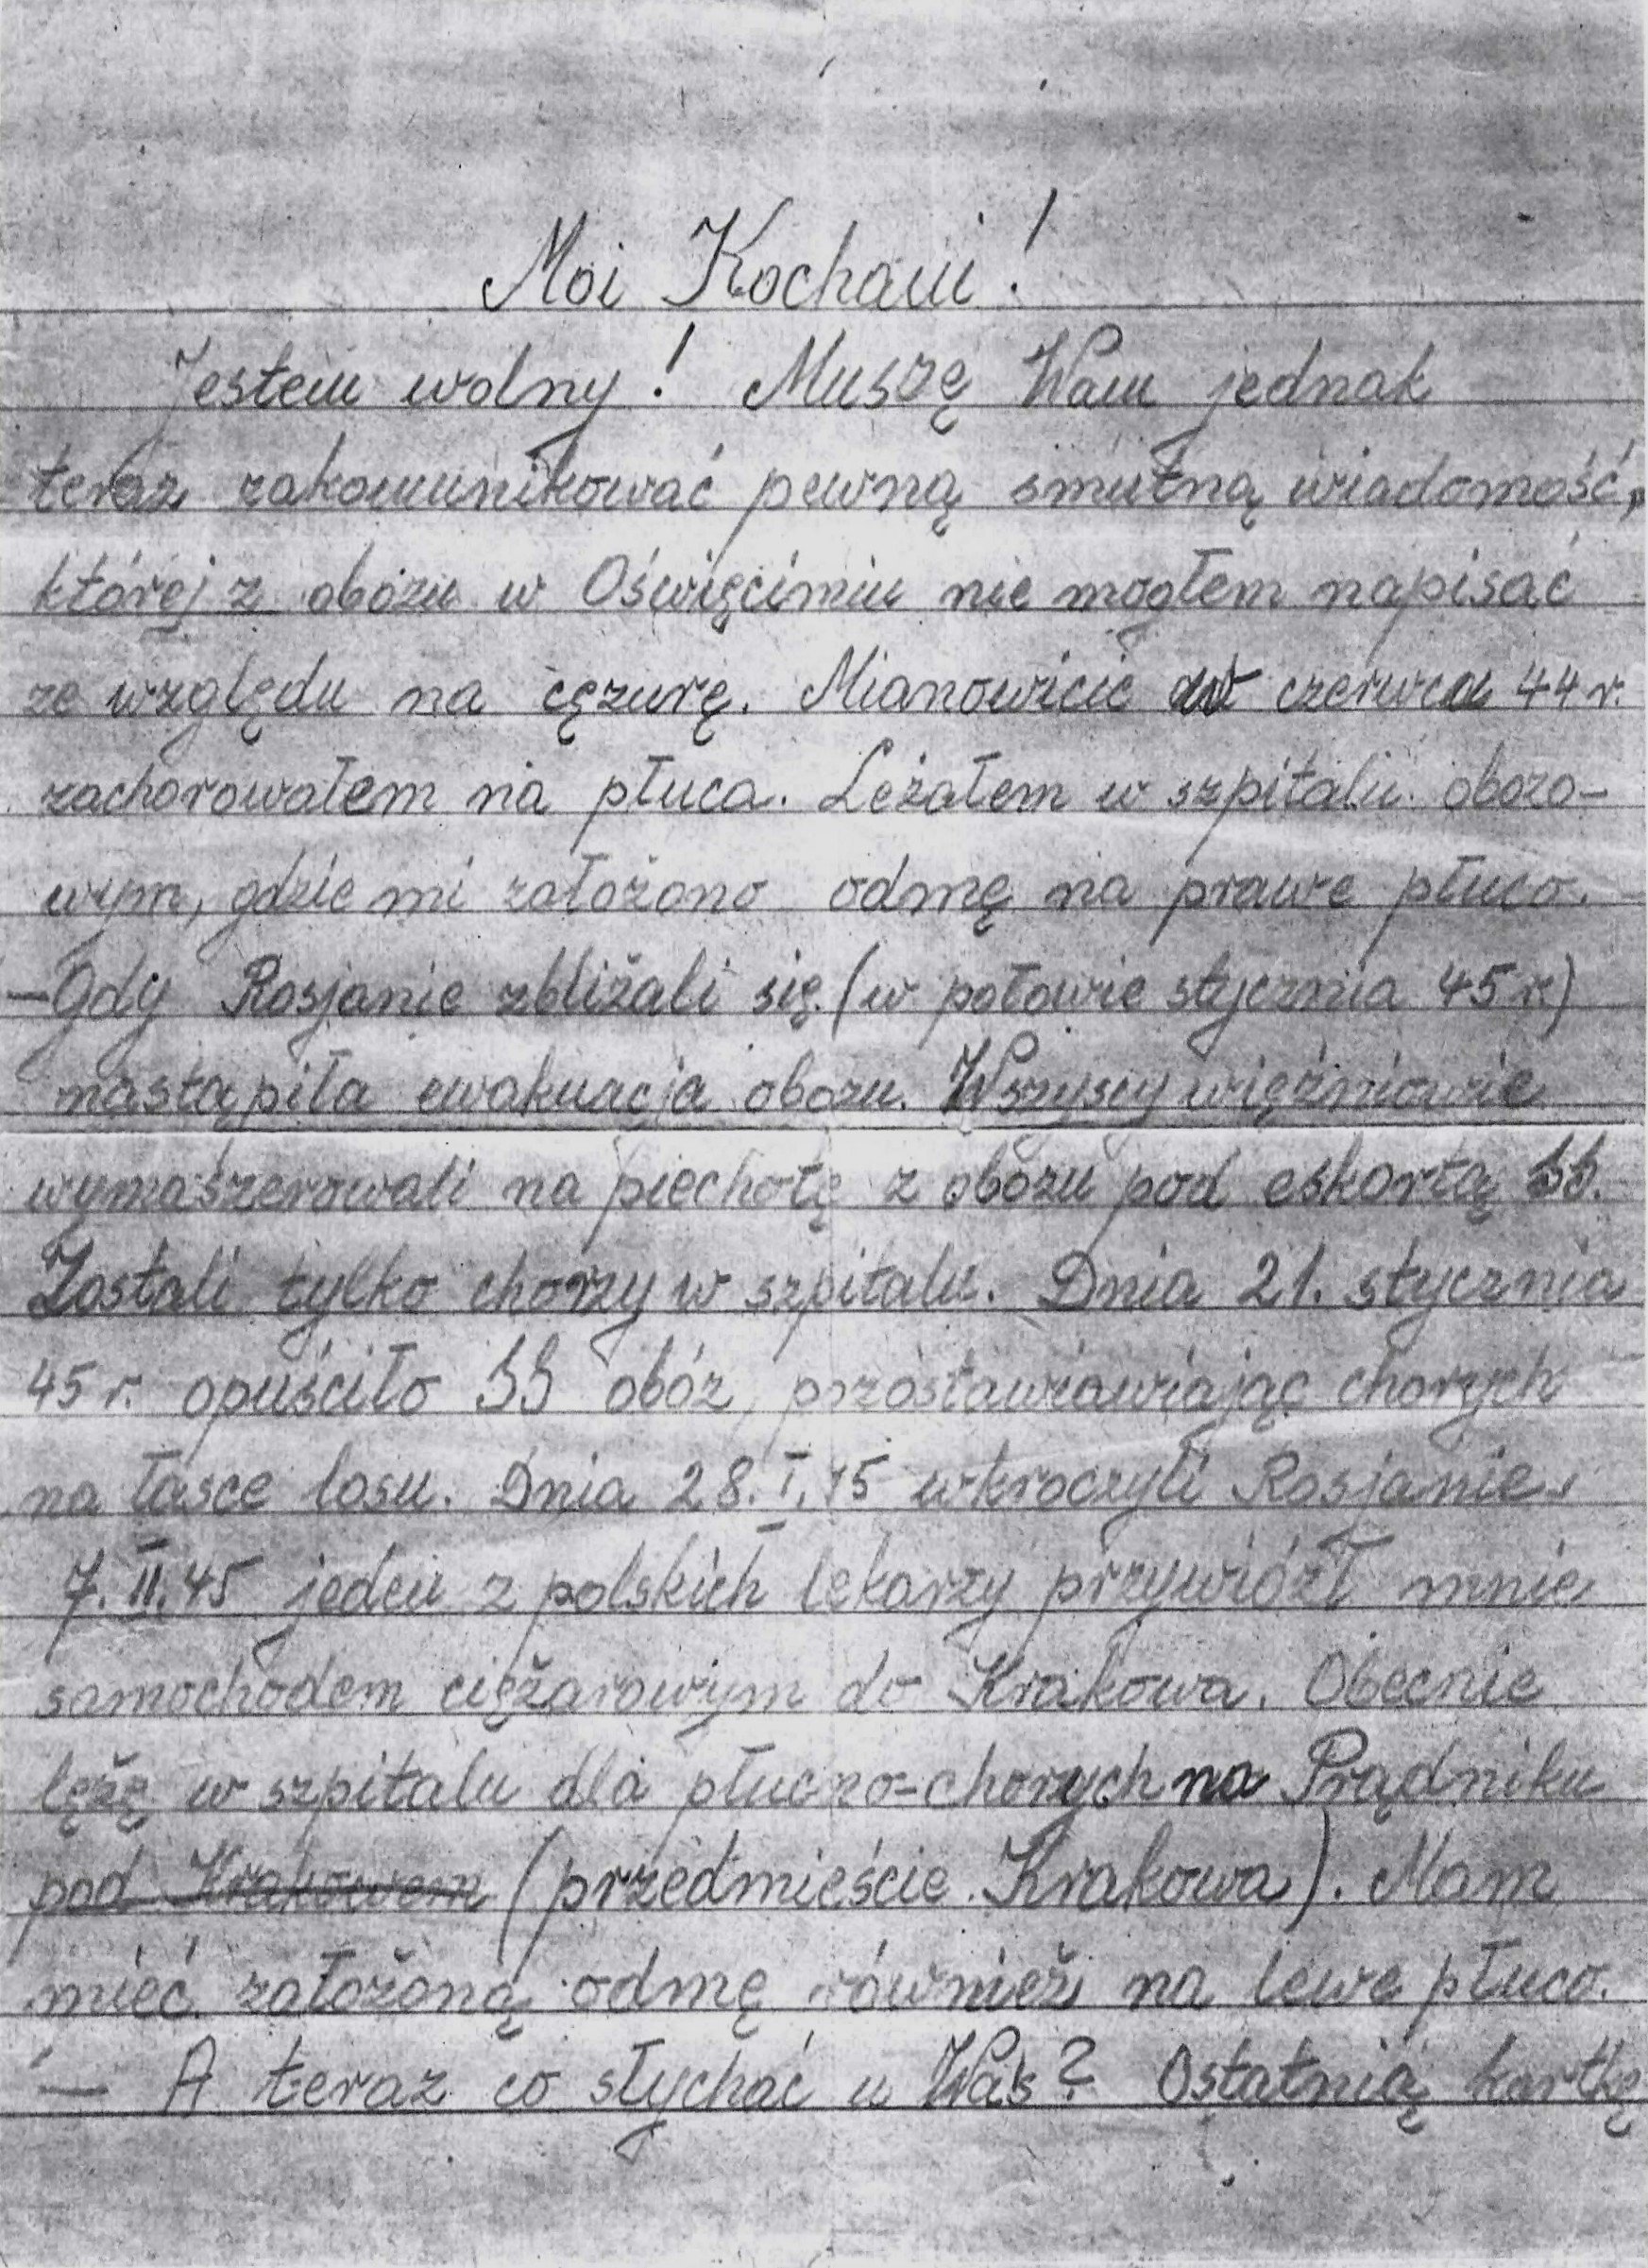 Moi Kochani!
Jestem wolny! Muszę Wam jednak
teraz zakomunikować pewną smutną wiadomość,
której z obozu w Oświęcimiu nie mogłem napisać
ze względu na cęzurę. Mianowicie w czerwcu 44 r.
zachorowałem na płuca. Leżałem w szpitalu obozo-
wym, gdzie mi założono odmę na prawe płuco.
– Gdy Rosjanie zbliżali się (w połowie stycznia 45 r.)
nastąpiła ewakuacja obozu. Wszyscy więźniowie
wymaszerowali na piechotę z obozu pod eskortą SS.
Zostali tylko chorzy w szpitalu. Dnia 21. stycznia
45 r. opuściło SS obóz, pozostawiawiając chorych
na łasce losu. Dnia 28. I. 45 wkroczyli Rosjanie.
7. II. 45 jeden z polskich lekarzy przywiózł mnie
samochodem ciężarowym do Krakowa. Obecnie
lężę w szpitalu dla płucno-chorych na Prądniku
pod Krakowem (przedmieście Krakowa). Mam
mieć założoną odmę również na lewe płuco.
– A teraz co słychać u Was? Ostatnią kartkę